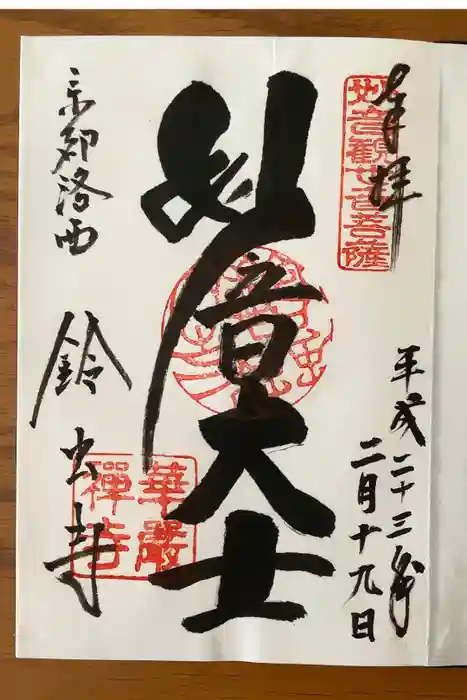 奉拝
妙音観世音菩薩
平成二十三年
二月十九日
妙音大士
京都洛西
鈴虫寺
華厳
禅寺